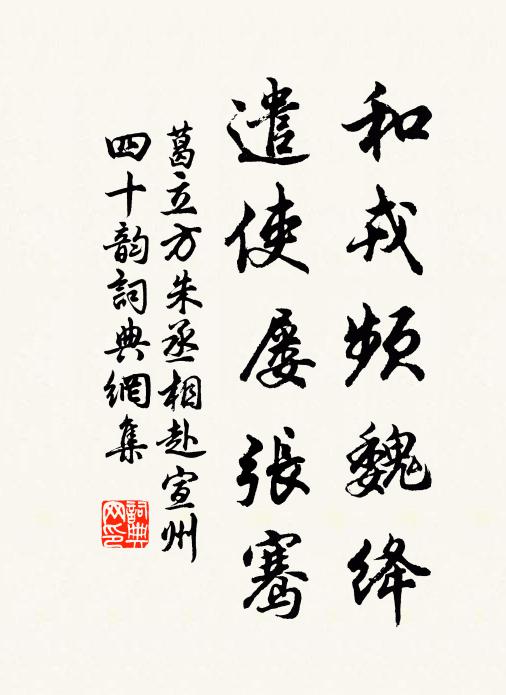 和戎頻魏绛
遣使屡張骞
葛立方朱丞相赴宣州
四十韵詞典網集
詞典网印